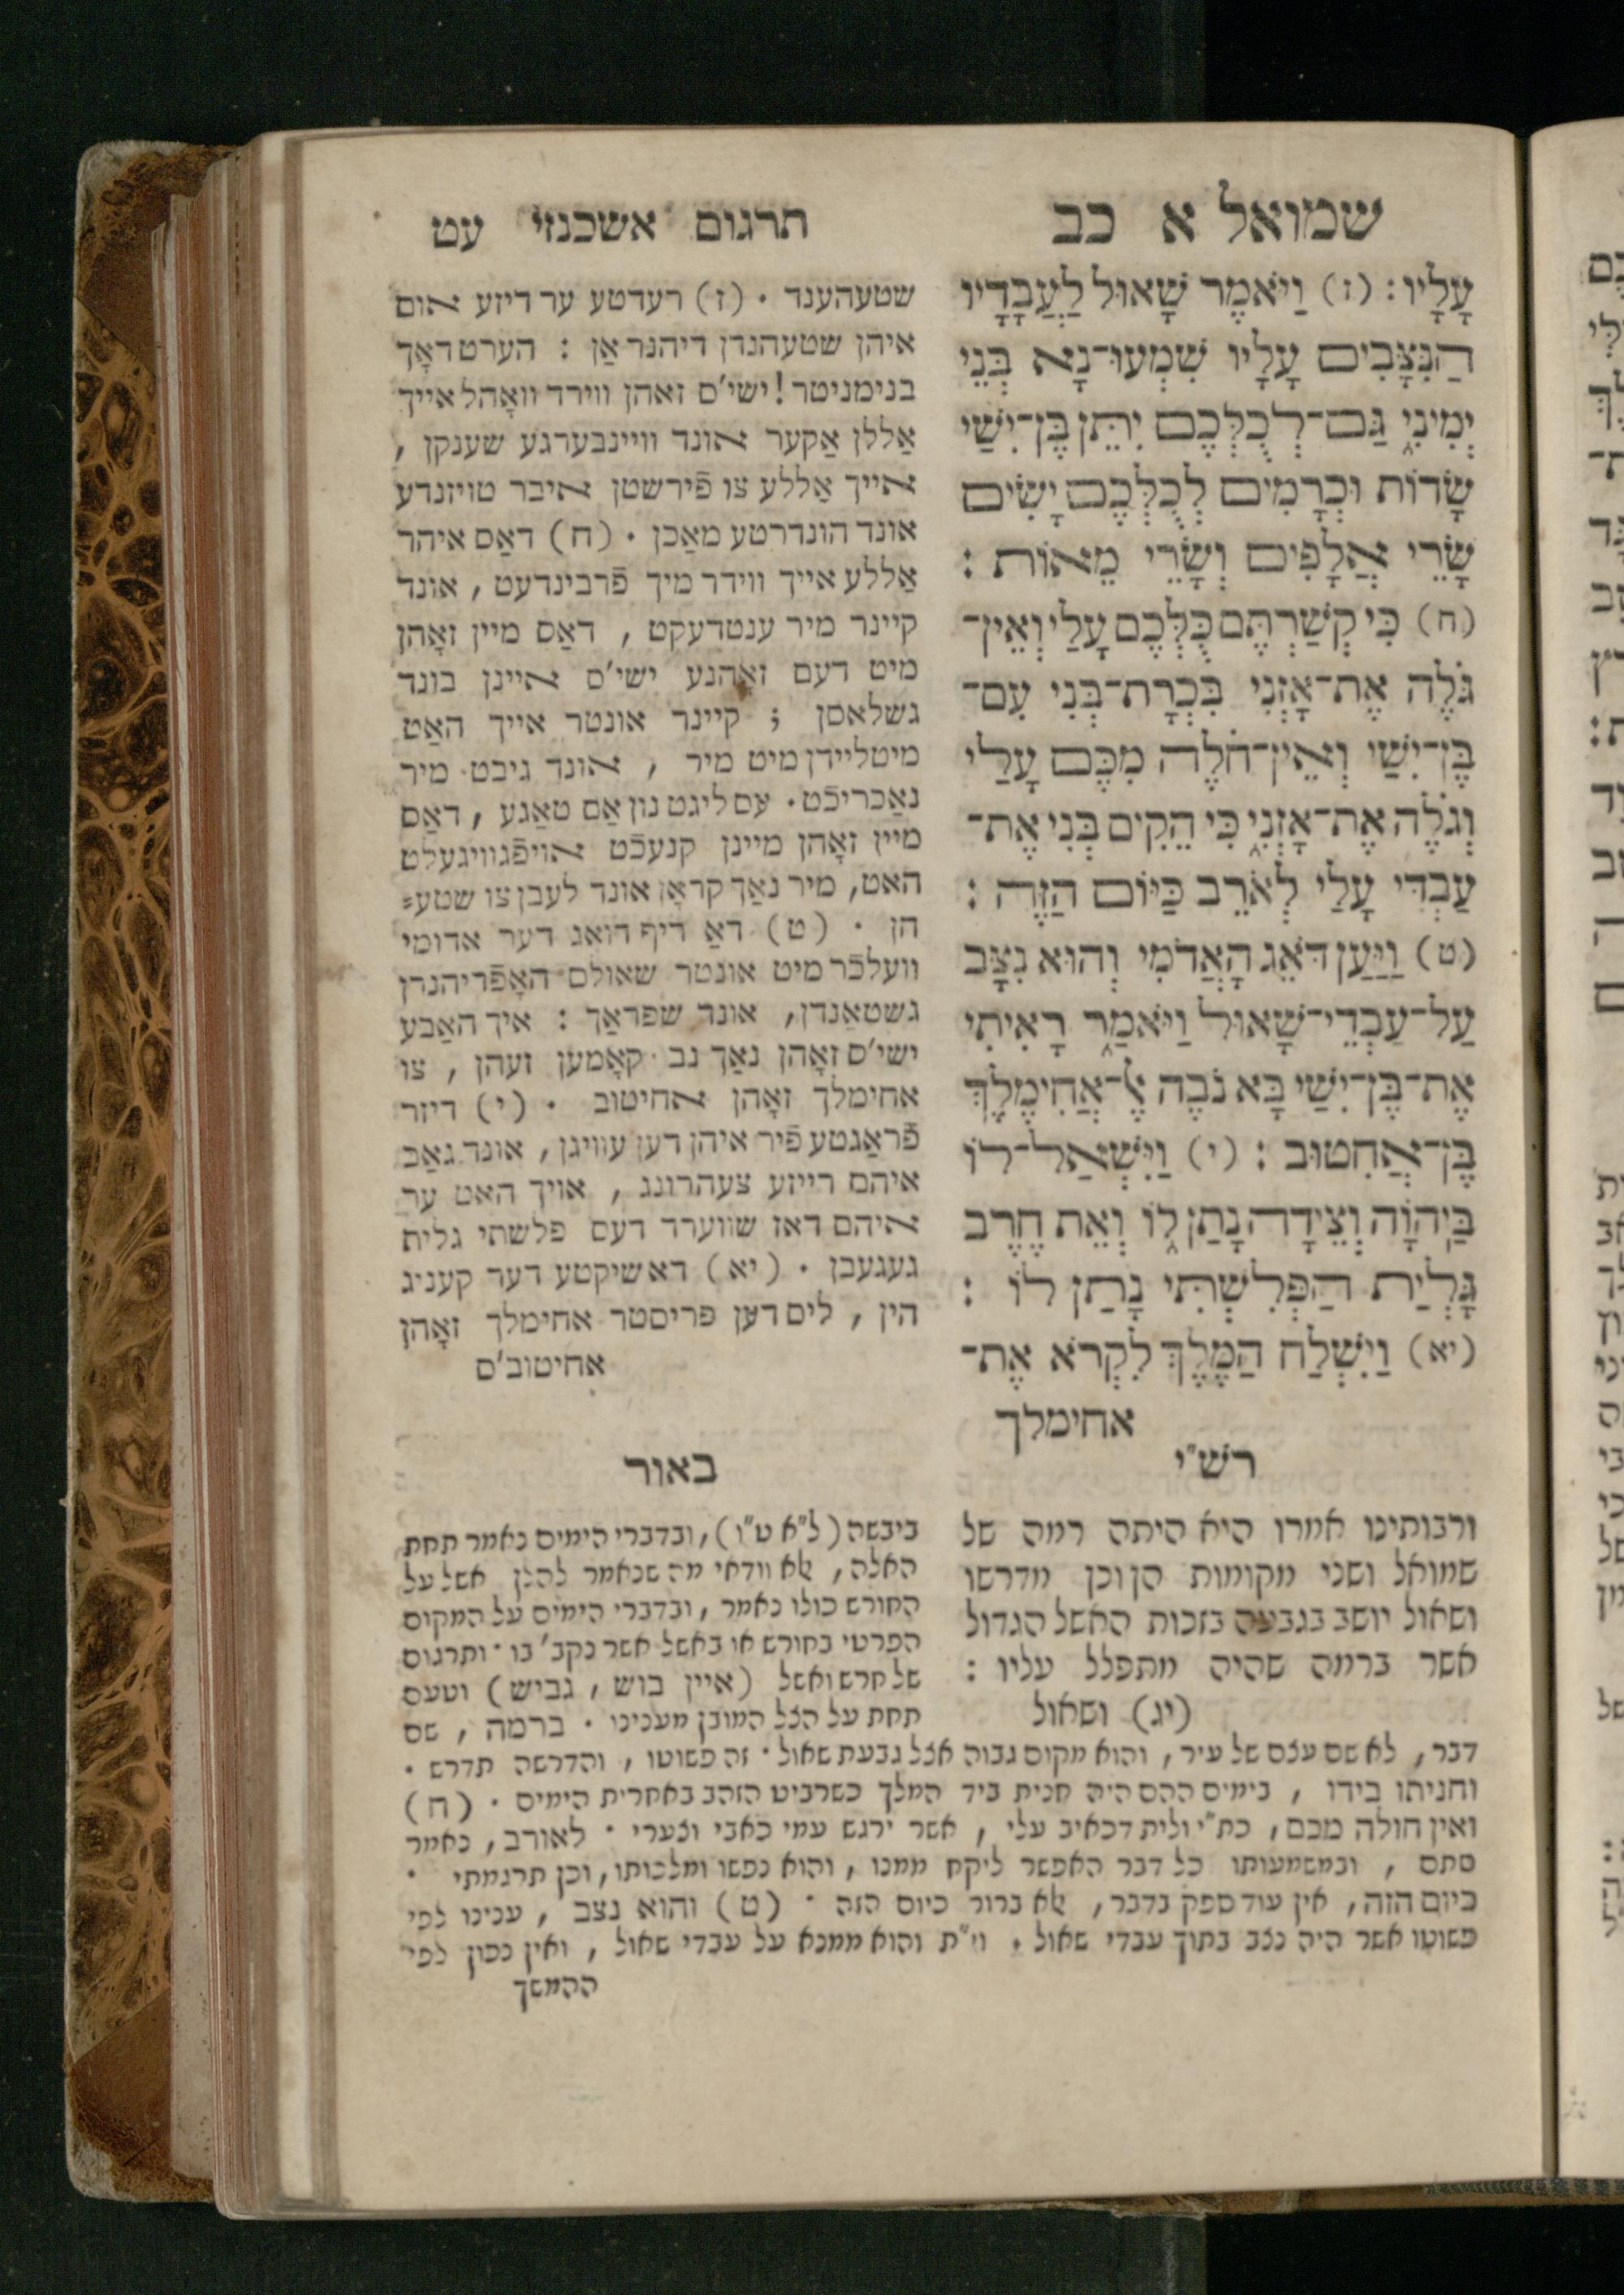 שמואל א כב
עָלָיו: (ז) וַיֹּאמֶר שָׁאוּל לַעֲבָדָיו
הַנִּצָּבִים עָלָיו שִׁמְעוּ־נָא בְּנֵי
יְמִינִי גַּם־לְכֻלְּכֶם יִתֵּן בֶּן־יִשַׁי
שָׂדוֹת וּכְרָמִים לְכֻלְּכֶם יָשִׂים
שָׂרֵי אֲלָפִים וְשָׂרֵי מֵאוֹת:
(ח) כִּי קְשַׁרְתֶּם כֻּלְּכֶם עָלַי וְאֵין־
גֹּלֶה אֶת־אָזְנִי בִּכְרָת־בְּנִי עִם־
בֶּן־יִשַׁי וְאֵין־חֹלֶה מִכֶּם עָלַי
וְגֹלֶה אֶת־אָזְנִי כִּי הֵקִים בְּנִי אֶת־
עַבְדִּי עָלַי לְאֹרֵב כַּיּוֹם הַזֶּה:
(ט) וַיַּעַן דֹּאֵג הָאֲדֹמִי וְהוּא נִצָּב
עַל־עַבְדֵי־שָׁאוּל וַיֹּאמַר רָאִיתִי
אֶת־בֶּן־יִשַׁי בָּא נֹבֶה אֶל־אֲחִימֶלֶךְ
בֶּן־אֲחִטוּב: (י) וַיִּשְׁאַל־לוֹ
בַּיהוָֹה וְצֵידָה נָתַן לוֹ וְאֵת חֶרֶב
גָּלְיַת הַפְּלִשְׁתִּי נָתַן לוֹ:
(יא) וַיִּשְׁלַח הַמֶּלֶךְ לִקְרֹא אֶת־
אחימלך
תרגום אשכנזי עט
שטעהענד. (ז) רעדטע ער דיזע אום
איהן שטעהנדן דיהנר אַן: הערט דאָך
בנימניטר! ישי'ס זאהן ווירד וואָהל אייך
אַללן אַקער אונד וויינבערגע שענקן,
אייך אַללע צו פֿירשטן איבר טויזנדע
אונד הונדרטע מאַכן. (ח) דאַס איהר
אַללע אייך ווידר מיך פֿרבינדעט, אונד
קיינר מיר ענטדעקט, דאַס מיין זאָהן
מיט דעם זאָהנע ישי'ס איינן בונד
גשלאסן; קיינר אונטר אייך האַט
מיטליידן מיט מיר, אונד גיבט מיר
נאַכריכֿט. עס ליגט נון אַם טאַגע, דאַס
מיין זאָהן מיינן קנעכֿט אויפֿגוויגעלט
האט, מיר נאַך קראָן אונד לעבן צו שטע=
הן. (ט) דאַ ריף דואג דער אדומי
וועלכֿר מיט אונטר שאולס האָפֿדיהנרן
גשטאַנדן, אונד שפראַך: איך האַבע
ישי'ס זאָהן נאַך נב קאָממען זעהן, צו
אחימלך זאָהן אחיטוב. (י) דיזר
פֿראַגטע פֿיר איהן דען עוויגן, אונד גאַב
איהם רייזע צעהרונג, אויך האט ער
איהם דאז שווערד דעס פלשתי גלית
געגעבן. (יא) דא שיקטע דער קעניג
הין, ליס דען פריסטר אחימלך זאָהן
אחיטוב'ס
רש"י
ורבותינו אמרו היא היתה רמה של
שמואל ושני מקומות הן וכן מדרשו
ושאול יושב בגבעה בזכות האשל הגדול
אשר ברמה שהיה מתפלל עליו:
(יג) ושאול
באור
ביבשה (ל"א ט"ו), ובדברי הימים נאמר תחת
האלה, אלא וודאי מה שנאמר להלן אשל על
החורש כולו נאמר, ובדברי הימים על המקום
הפרטי בחורש או באשל אשר נקב' בו. ותרגום
של חרש ואשל (איין בוש, גביש) וטעם
תחת על הצל המובן מענינו. ברמה, שם
דבר, לא שם עצם של עיר, והוא מקום גבוה אצל גבעת שאול. זה פשוטו, והדרשה תדרש.
וחניתו בידו, בימים ההם היה חנית ביד המלך כשרביט הזהב באחרית הימים. (ח)
ואין חולה מכם, כת"י ולית דכאיב עלי, אשר ירגש עמי כאבי וצערי. לאורב, נאמר
סתם, ובמשמעותו כל דבר האפשר ליקח ממנו, והוא נפשו ומלכותו, וכן תרגמתי.
כיום הזה, אין עוד ספק בדבר, אלא ברור כיום הזה. (ט) והוא נצב, ענינו לפי
פשוטו אשר היה נצב בתוך עבדי שאול. וי"ת והוא ממנא על עבדי שאול, ואין נכון לפי
ההמשך